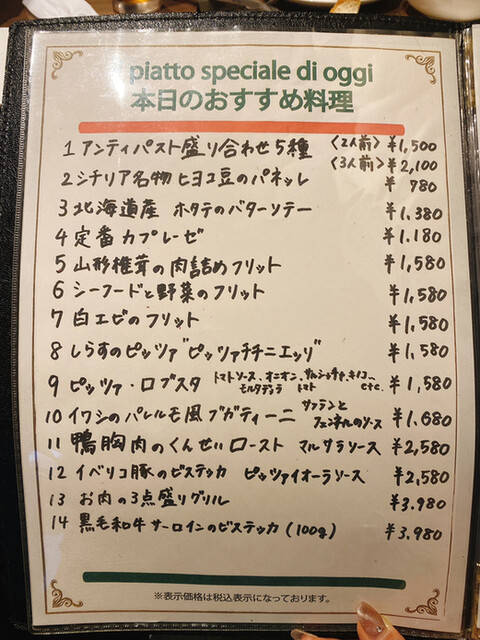 piatto speciale di oggi
本日のおすすめ料理
1 アンティパスト盛り合わせ5種 〈2人前〉 ¥1,500
〈3人前〉 ¥2,100
2 シチリア名物 ヒヨコ豆のパネッレ ¥780
3 北海道産 ホタテのバターソテー ¥1.380
4 定番カプレーゼ ¥1.180
5 山形椎茸の肉詰めフリット ¥1,580
6 シーフードと野菜のフリット ¥1,580
7 白エビのフリット ¥1,580
8 しらすのピッツァ"ピッツァチチニエッリ" ¥1,580
9 ピッツァ・ロブスタ トマトソース、オニオン、サルシッチャ、キノコ、
モルタデッラ トマト etc. ¥1,580
10 イワシのパレルモ風ブガティーニ サフランと
フェンネルのソース ¥1.680
11 鴨胸肉のくんせいロースト マルサラソース ¥2,580
12 イベリコ豚のビステッカ ピッツァイオーラソース ¥2,580
13 お肉の3点盛りグリル ¥3.980
14 黒毛和牛サーロインのビステッカ (100g) ¥3.980
※表示価格は税込表示になっております。